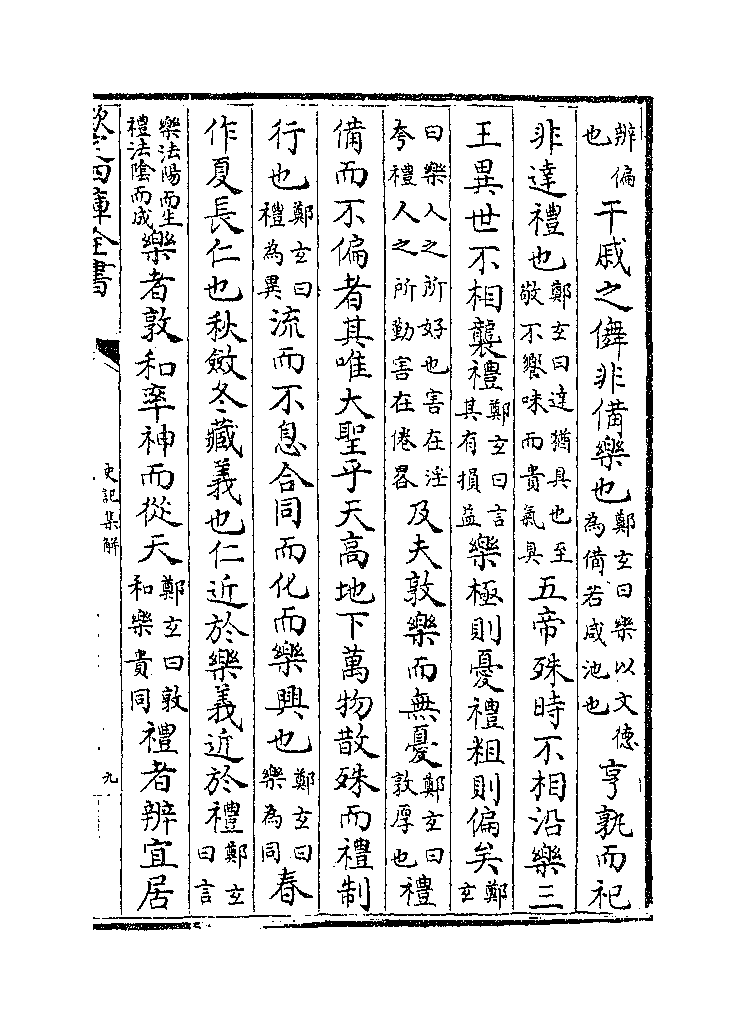 辨偏也干戚之儛非備樂也鄭玄曰樂以文徳為備若咸池也亨孰而祀
非達禮也鄭玄曰達猶具也至敬不饗味而貴氣臭五帝殊時不相沿樂三
王異世不相襲禮鄭玄曰言其有損益樂極則憂禮粗則偏矣鄭玄
曰樂人之所好也害在淫夸禮人之所勤害在倦畧及夫敦樂而無憂鄭玄曰敦厚也禮
備而不偏者其唯大聖乎天高地下萬物散殊而禮制
行也鄭玄曰禮為異流而不息合同而化而樂興也鄭玄曰樂為同春
作夏長仁也秋斂冬藏義也仁近於樂義近於禮鄭玄曰言
樂法陽而生禮法陰而成樂者敦和率神而從天鄭玄曰敦和樂貴同禮者辨宜居
欽定四庫全書
史記集解
九